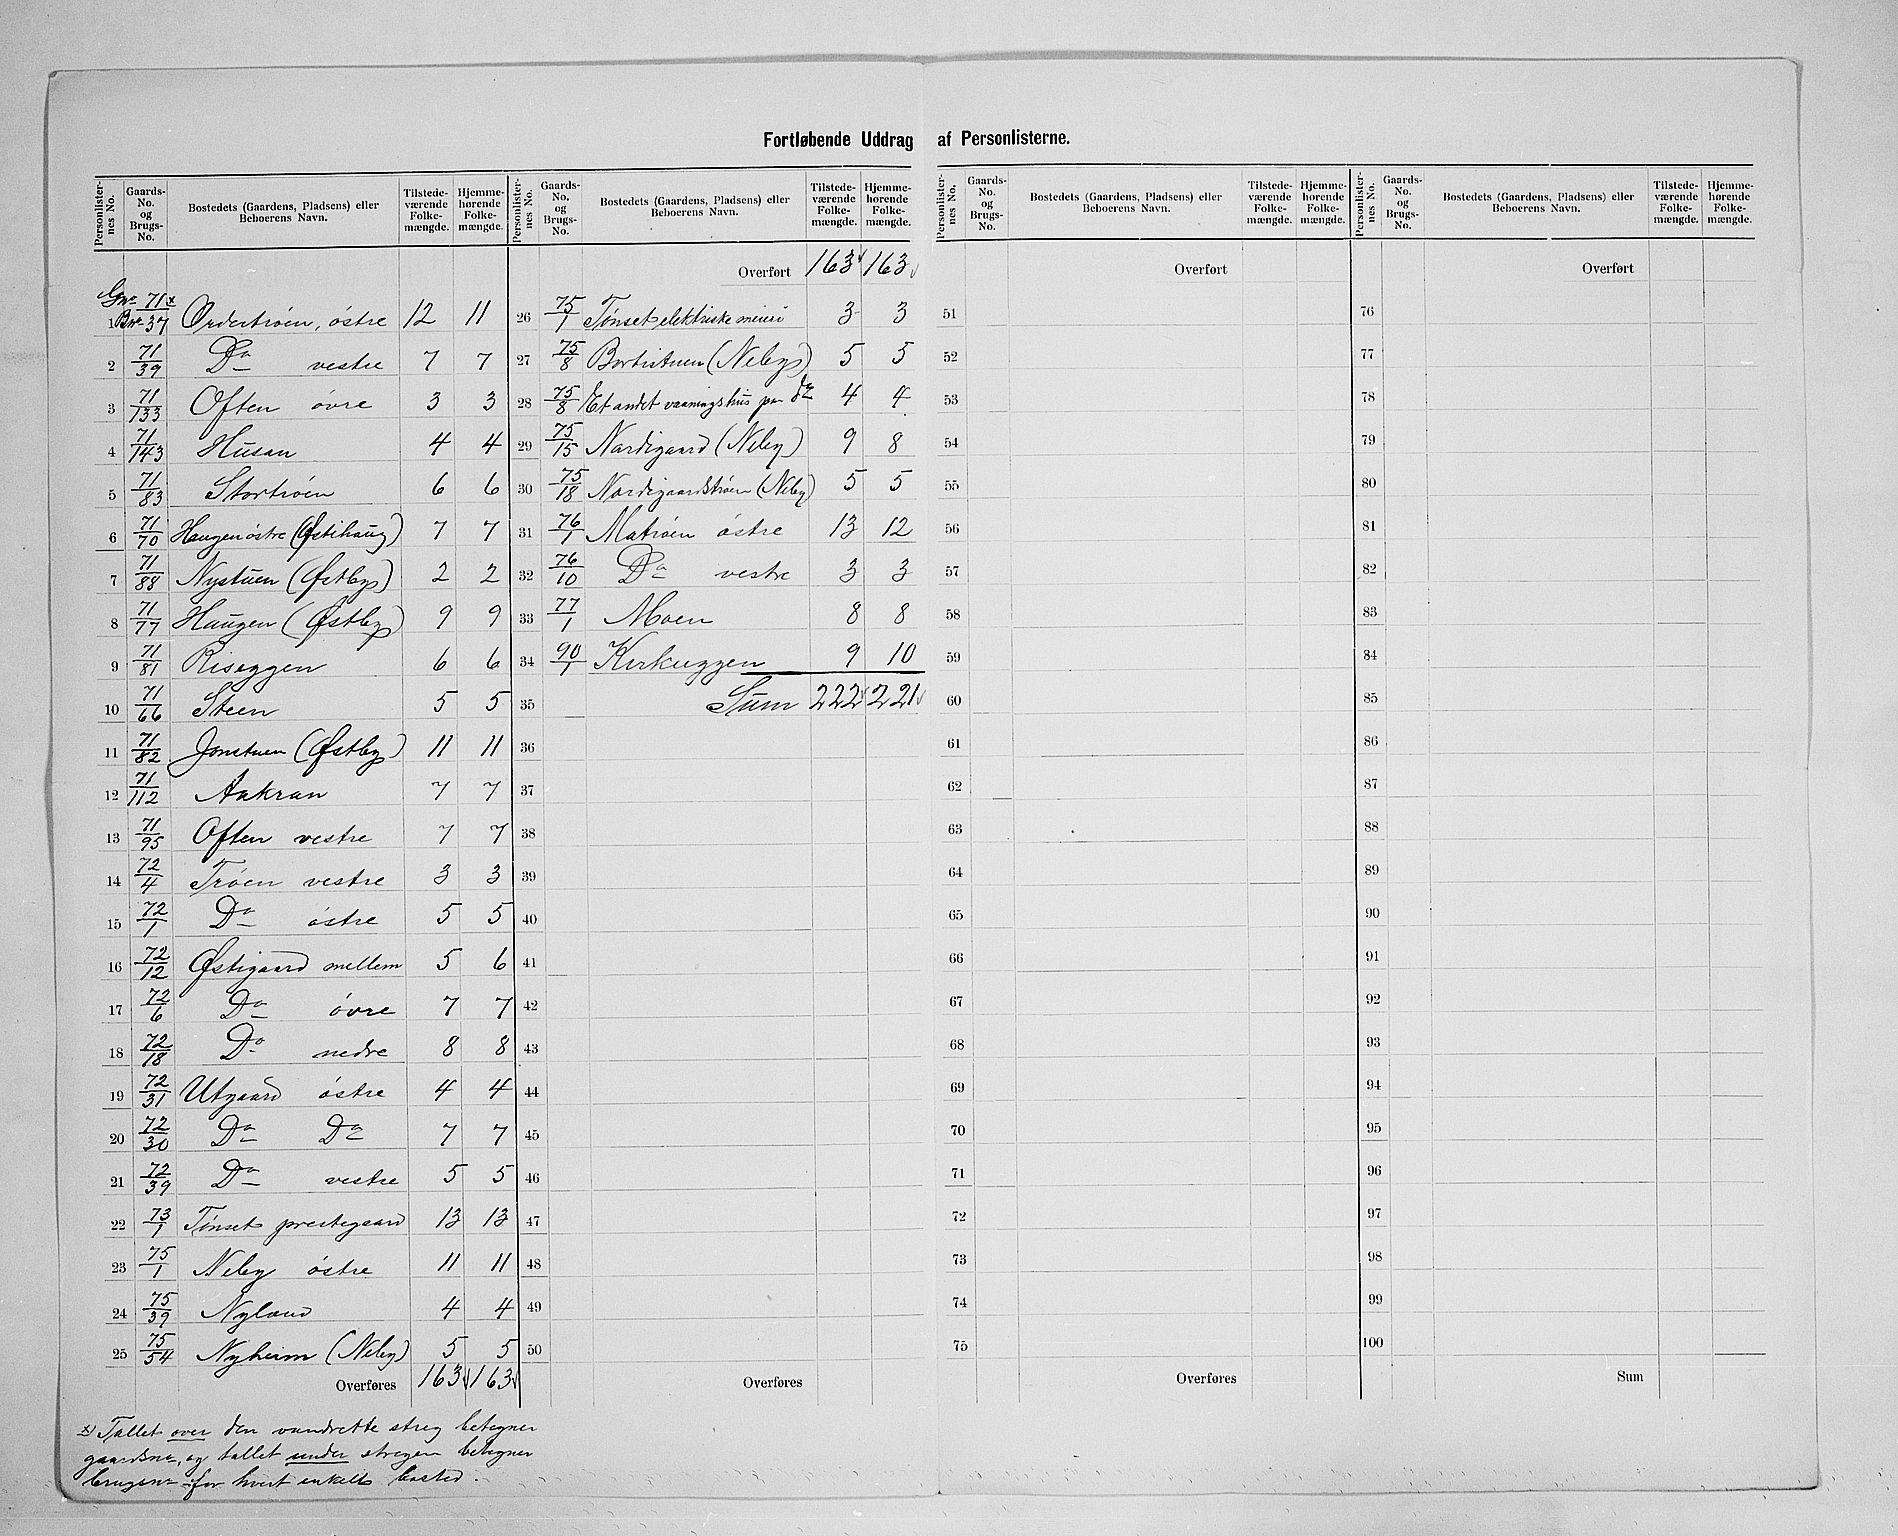 Fortløbende Uddrag af Personlisterne.
Personlisternes No. Gaards-No. og Brugs-No. Bostedets (Gaardens, Pladsens) eller Beboerens Navn. Tilstedeværende Folkemængde. Hjemmehørende Folkemængde.
Gno 71x
1 Bno 37 Ordertrøen, østre 12 11
2 71/39 Do vestre 7 7
3 71/133 Often øvre 3 3
4 71/143 Husan 4 4
5 71/83 Stortrøen 6 6
6 71/70 Haugen østre (Østihaug) 7 7
7 71/88 Nystuen (Østby) 2 2
8 71/77 Haugen (Østby) 9 9
9 71/81 Riseggen 6 6
10 71/66 Steen 5 5
11 71/82 Jonstuen (Østby) 11 11
12 71/112 Aakran 7 7
13 71/95 Often vestre 7 7
14 72/4 Trøen vestre 3 3
15 72/1 Do østre 5 5
16 72/12 Østigaard mellem 5 6
17 72/6 Do øvre 7 7
18 72/18 Do nedre 8 8
19 72/31 Utgaard østre 4 4
20 72/30 Do Do 7 7
21 72/39 Do vestre 5 5
22 73/1 Tønset prestegaard 13 13
23 75/1 Neby østre 11 11
24 75/39 Nyland 4 4
25 75/54 Nyheim (Neby) 5 5
Overføres 163 163
x) Tallet over den vandrette streg betegner
gaardsno, og tallet under stregen betegner
brugsno for hvert enkelt bosted.
Personlisternes No. Gaards-No. og Brugs-No. Bostedets (Gaardens, Pladsens) eller Beboerens Navn. Tilstedeværende Folkemængde. Hjemmehørende Folkemængde.
Overført 163 163
26 75/1 Tønset elektriske meieri 3 3
27 75/8 Bortistuen (Neby) 5 5
28 75/8 Et andet vaaningshus paa do 4 4
29 75/15 Nordigaard (Neby) 9 8
30 75/18 Nordigaardstrøen (Neby) 5 5
31 76/1 Motrøen østre 13 12
32 76/10 Do vestre 3 3
33 77/1 Moen 8 8
34 90/1 Kirkeggen 9 10
35 Sum 222 221
36
37
38
39
40
41
42
43
44
45
46
47
48
49
50
Overføres
Personlisternes No. Gaards-No. og Brugs-No. Bostedets (Gaardens, Pladsens) eller Beboerens Navn. Tilstedeværende Folkemængde. Hjemmehørende Folkemængde.
Overført
51
52
53
54
55
56
57
58
59
60
61
62
63
64
65
66
67
68
69
70
71
72
73
74
75
Overføres
Personlisternes No. Gaards-No. og Brugs-No. Bostedets (Gaardens, Pladsens) eller Beboerens Navn. Tilstedeværende Folkemængde. Hjemmehørende Folkemængde.
Overført
76
77
78
79
80
81
82
83
84
85
86
87
88
89
90
91
92
93
94
95
96
97
98
99
100
Sum